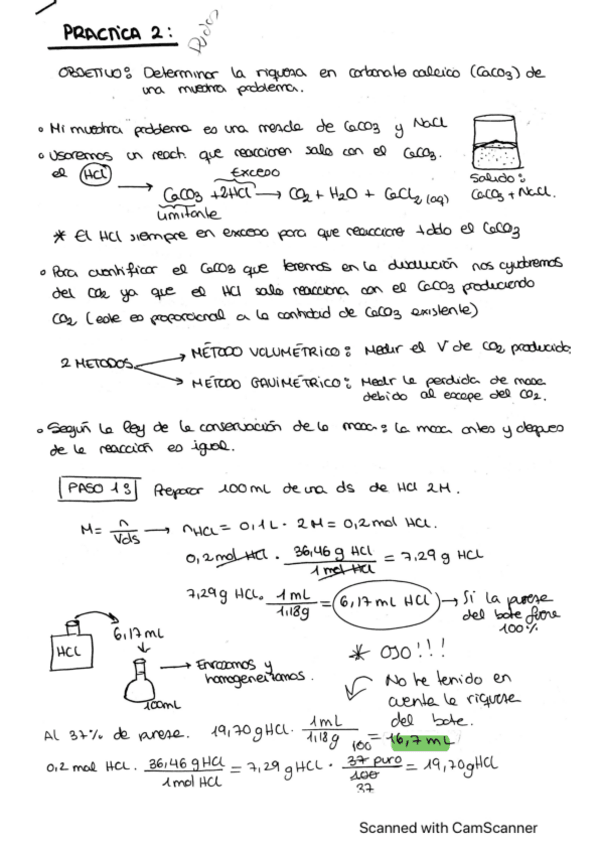 PRACTICA 2:
OBJETIVO: Determinar la riqueza en carbonato calcico (CaCO3) de
una muestra problema.
• Mi muestra problema es una mezcla de CaCO3 y NaCl
• Usaremos un react. que reaccionen solo con el CaCO3.
el HCl
Exceso
CaCO3 + 2HCl → CO2 + H2O + CaCl2 (aq)
Limitante
Solido:
CaCO3 + NaCl.
* El HCl siempre en exceso para que reaccione todo el CaCO3
• Para cuantificar el CaCO3 que tenemos en la disolución nos ayudaremos
del CO2 ya que el HCl solo reacciona con el CaCO3 produciendo
CO2 (este es proporcional a la cantidad de CaCO3 existente)
2 METODOS
→ MÉTODO VOLUMÉTRICO: Medir el V de CO2 producido.
→ MÉTODO GAVIMÉTRICO: Medir la perdida de masa
debido al escape del CO2.
• Según la ley de la conservación de la masa: la masa antes y despues
de la reacción es igual.
PASO 1: Preparar 100 mL de una ds de HCl 2M.
M = n / Vds → nHCl = 0,1 L · 2 M = 0,2 mol HCl.
0,2 mol HCl · 36,46 g HCl / 1 mol HCl = 7,29 g HCl
7,29 g HCl · 1 mL / 1,18 g = 6,17 mL HCl → Si la pureza
del bote fuera
100%
HCl
6,17 mL
100 mL
→ Enrasamos y
homogeneizamos.
* OJO!!!
No he tenido en
cuenta la riqueza
del bote.
Al 37% de pureza. 19,70 g HCl · 1 mL / 1,18 g = 16,7 mL
0,2 mol HCl · 36,46 g HCl / 1 mol HCl = 7,29 g HCl · 100 / 37 puro = 19,70 g HCl
100
37
Scanned with CamScanner